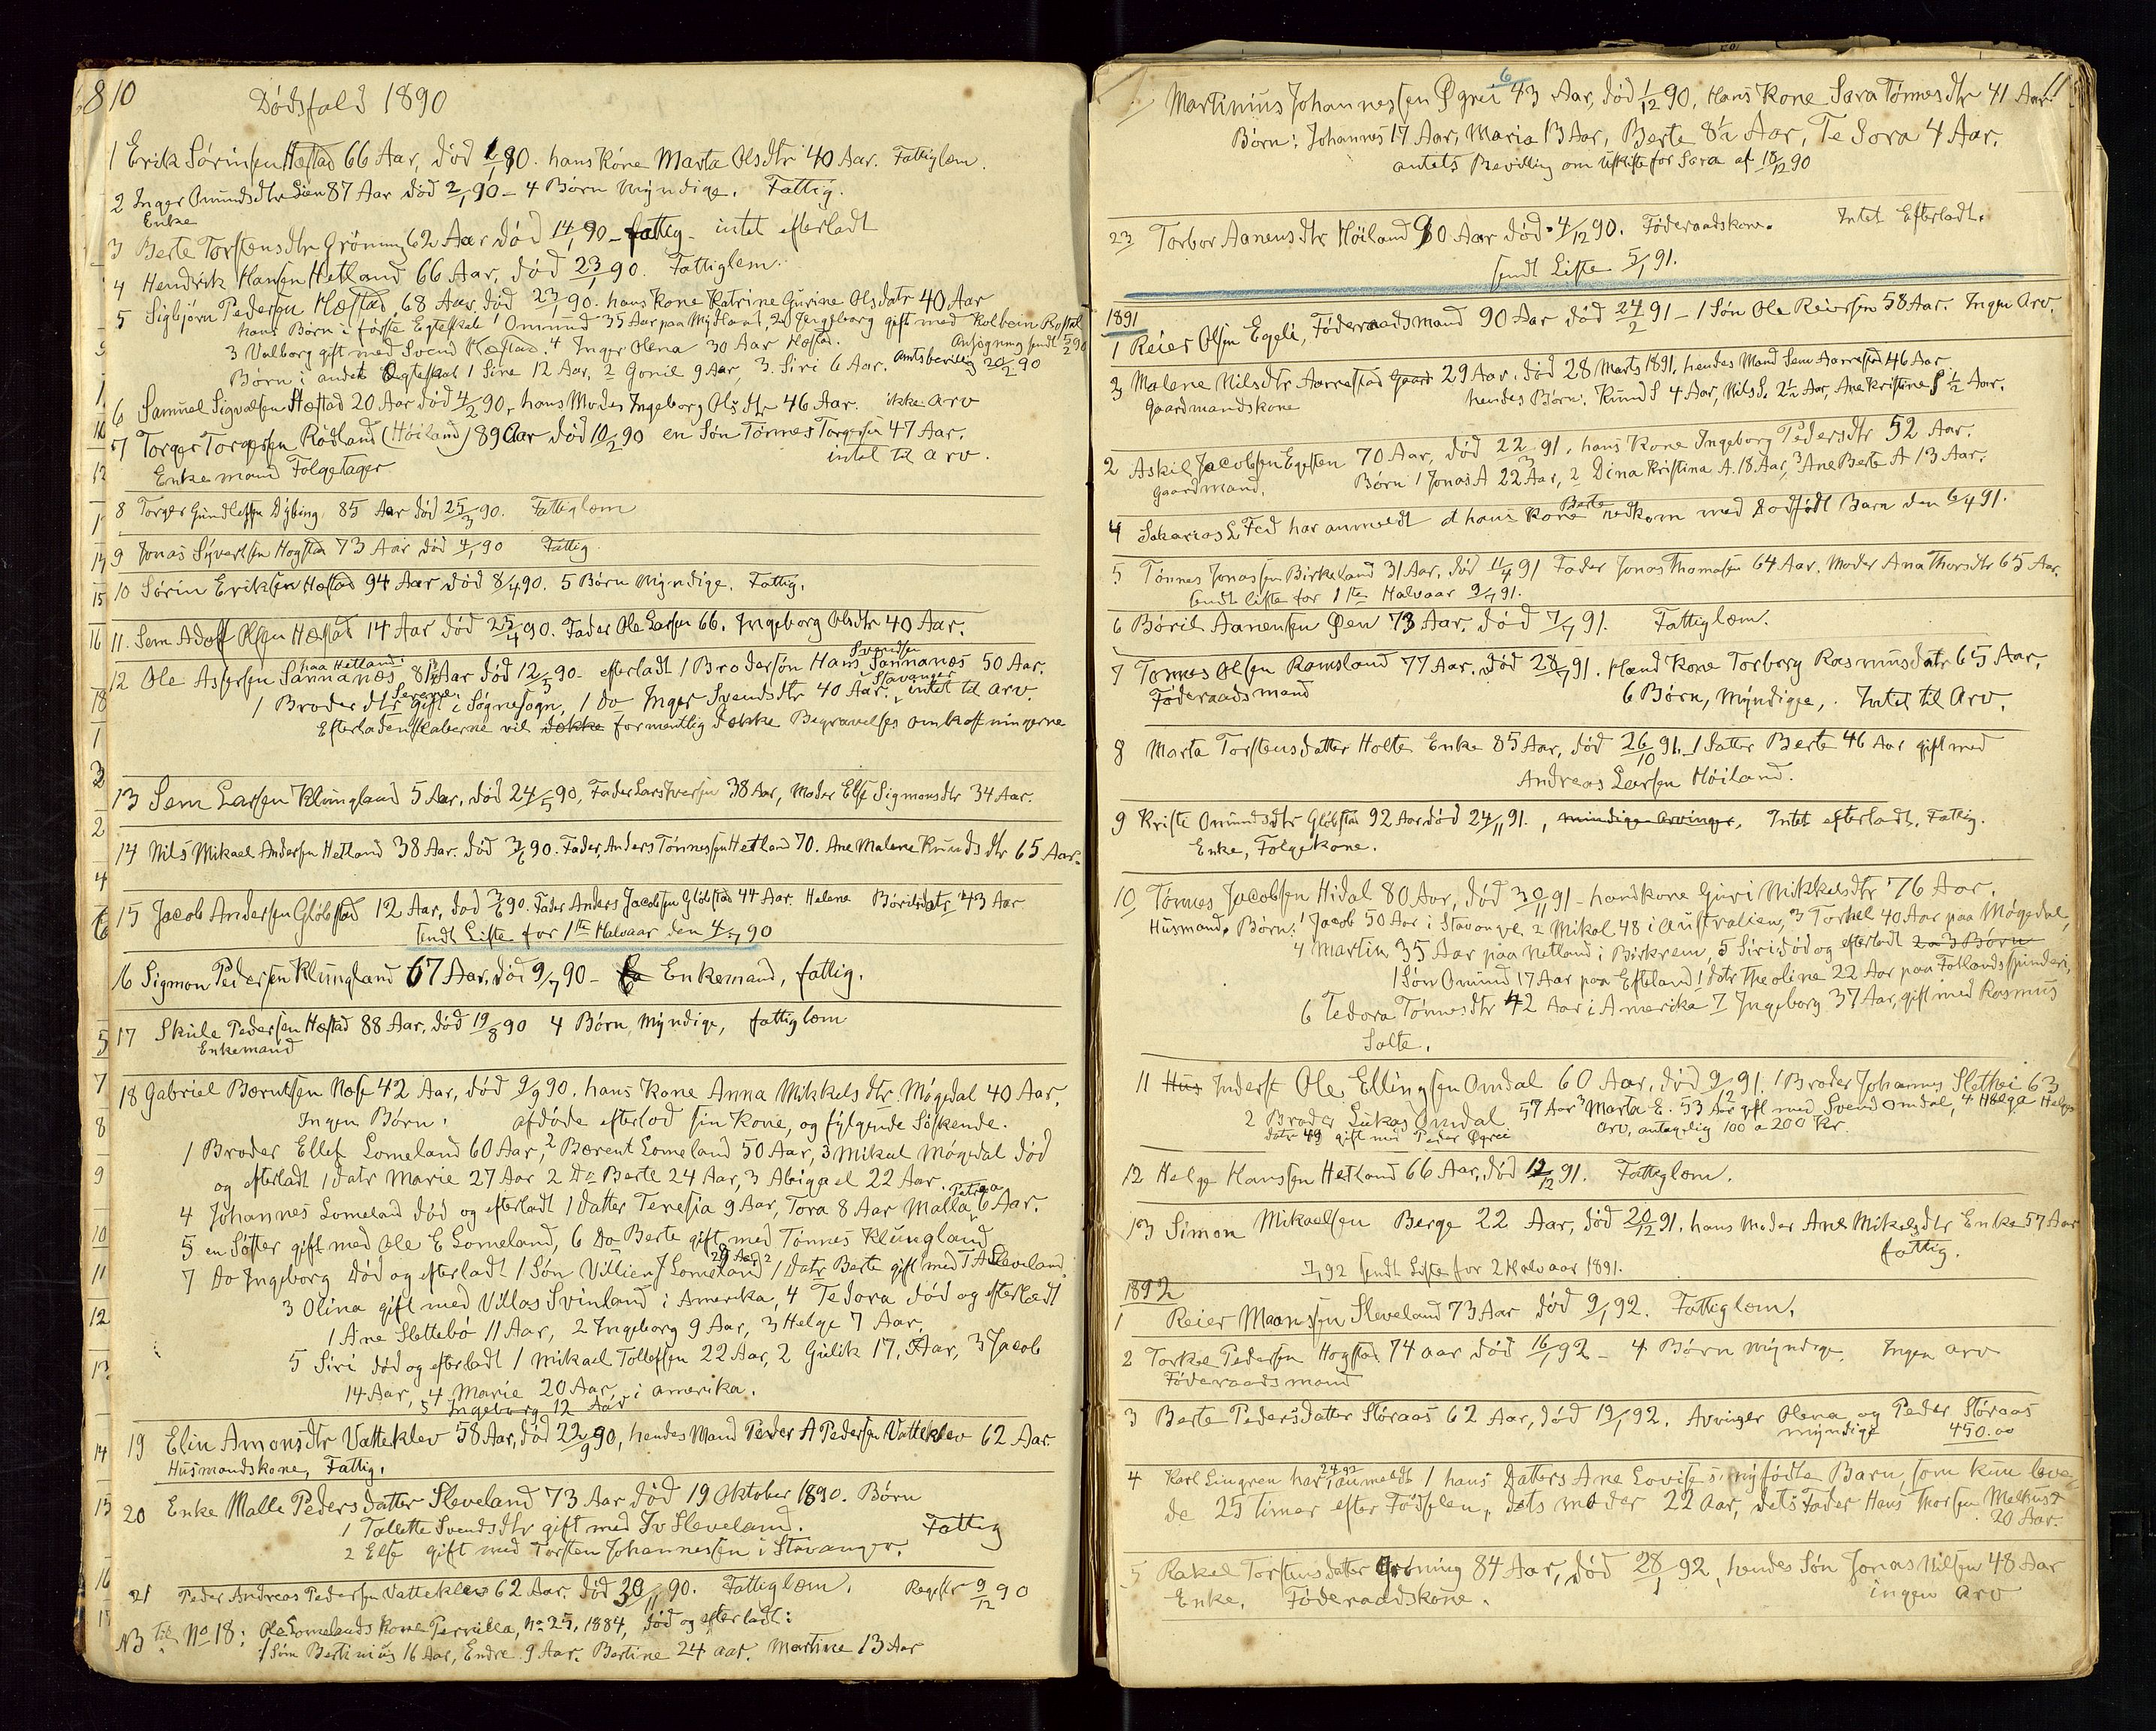 10
Dödsfald 1890
1 Erik Sörinsen Hæstad 66 Aar, död 90. hans Kone Marta Olsdtr 40 Aar. Fattiglæm.
2 Inger Omundsdtr Lien 87 Aar död 2/1 90 - 4 Börn Myndige. Fattig.
Enke
3 Berte Torstensdtr Gröning 62 Aar död 14/1 90 - fattig - intet efterladt
4 Hendrik Hansen Hetland 66 Aar, död 23/1 90. Fattiglem.
5 Sigbjörn Pedersen Hæstad, 68 Aar, död 23/1 90. hans Kone Katrine Gurine Olsdatr 40 Aar
hans Börn i förste Egteskab 1 Omund 35 Aar paa Mydland, 2 Ingeborg gift med Kolbein
3 Valborg gift med Svend Hæstad. 4 Inger Olena 30 Aar Hæstad. Ansögning sendt 5/2 90
Börn i andet Egteskab 1 Sine 12 Aar, 2 Gonil 9 Aar, 3. Siri 6 Aar. Amtsbevilg 20/2 90
6 Samuel Sigvalsen Hæstad 20 Aar död 4/2 90, hans Moder Ingeborg Olsdtr 46 Aar. ikke arv
7 Torger Torgersen Rödland (Höiland) 89 Aar död 10/2 90 en Sön Tönnes Torgersen 47 Aar.
Enkemand Folgetager intet til arv.
8 Torger Gundlessen Dybing 85 Aar död 25/3 90. Fattiglæm
9 Jonas Syvertsen Hogstad 73 Aar död 4/4 90 Fattig
10 Sörin Eriksen Hæstad 94 Aar död 8/4 90. 5 Börn Myndige. Fattig.
11. Sem Adolf Olsen Hæstad 14 Aar död 25/4 90. Fader Ole Larsen 66. Ingeborg Olsdtr 40 Aar.
paa Hetland. Svendsen
12 Ole Assersen Sannanæs 81½ Aar död 12/5 90 - efterladt 1 Brodersön Hans Sannanæs 50 Aar.
Serene. i Stavanger
1 Broder dtr gift i Sögnesogn, 1 do Inger Svendsdtr 40 Aar. intet til arv.
Efterladenskaberne vil dække formentlig dække Begravelses omkostningerne
13 Sem Larsen Klungland 5 Aar, död 24/5 90, Fader Lars Iversen 38 Aar, Moder Else Sigmonsdtr 34 Aar.
14 Nils Mikael Andersen Hetland 38 Aar. död 3/6 90. Fader, Anders Tönnessen Hetland 70. Ane Malene Knudsdtr 65 Aar.
15 Jacob Andersen Glöbstad 12 Aar, död 90. Fader Anders Jacobsen Glöbstad 44 Aar. Helene Börildsdatr 43 Aar
sendt Liste for 1ste Halvaar den 4/7 90
16 Sigmon Pedersen Klungland 67 Aar, död 9/7 90 - Enkemand, fattig.
17 Skule Pedersen Hæstad 88 Aar, död 19/8 90 4 Börn, Myndige, fattiglæm
Enkemand
18 Gabriel Bærntsen Næse 42 Aar, död 9/9 90, hans Kone Anna Mikkelsdtr. Mögedal 40 Aar.
Ingen Börn. afdöde efterlod sin Kone, og fylgende Söskende.
1 Broder Ellef Lomeland 60 Aar, 2 Bærent Lomeland 50 Aar, 3 Mikal Mögedal död
og efterladt 1 datr Marie 27 Aar 2 Do Berte 24 Aar, 3 Abigael 22 Aar.
4 Johannes Lomeland död og efterladt 1 datter Teresia 9 Aar, Tora 8 Aar Malla Petrea 6 Aar.
5 en Söster gift med Ole E Lomeland, 6 Do Berte gift med Tönnes Klungland
7 Do Ingeborg död og efterladt 1 Sön Villien J Lomeland 29 Aar, 2 1 datr Berte gift med T A Sleveland.
3 Olina gift med Villas Svinland i Amerika, 4 Tedora död og efterladt
1 Ane Slettebö 11 Aar, 2 Ingeborg 9 Aar, 3 Helge 7 Aar,
5 Siri död og efterladt 1 Mikael Tollefsen 22 Aar, 2 Gulik 17, Aar, 3 Jacob
14 Aar, 4 Marie 20 Aar, i amerika.
5 Ingeborg 12 Aar
19 Elin Amonsdtr Vatteklev 58 Aar, död 22/9 90, hendes Mand Peder A Pedersen Vatteklev 62 Aar.
Husmandskone, Fattig.
20 Enke Malle Pedersdatter Sleveland 73 Aar död 19 Oktober 1890. Börn
1 Tallette Svendsdtr gift med Iv Sleveland. Fattig
2 Else gift med Torsten Johannessen i Stavanger.
21 Peder Andreas Pedersen Vatteklev 62 Aar, död 30/11 90. Fattiglæm. Regstr 9/12 90
NB til No 18: Ole Lomelands Kone Pernilla, No 25, 1884, död og efterladt:
1 Sön Bertinius 16 Aar, Endre 9 Aar. Bertine 24 aar. Martine 13 Aar
11
Martinius Johannessen Øgrei 43 Aar, död 1/12 90, Hans Kone Sara Tönnesdtr 41 Aar
Börn: Johannes 17 Aar, Maria 13 Aar, Berte 8½ Aar, Tedora 4 Aar.
amtets Bevilling om Uskifte for Sara af 18/12 90
23 Torbor Aanensdtr Höiland 90 Aar död 4/12 90. Föderaadskone. Intet Efterladt.
sendt Liste 5/1 91.
1891
1 Reier Olsen Egeli, Föderaadsmand 90 Aar död 24/2 91 - 1 Sön Ole Reiersen 58 Aar. Ingen Arv.
3 Malene Nilsdtr Aarrestad Gaard 29 Aar, död 28 Marts 1891, hendes Mand Sem Aarrestad 46 Aar
Gaardmandskone hendes Börn. Knud S 4 Aar, Nils S. 2½ Aar, Ane Kristine S ½ Aar.
2 Askil Jacobsen Egesten 70 Aar, död 22/3 91, hans Kone Ingeborg Pedersdtr 52 Aar.
Gaardmand. Börn 1 Jonas A 22 Aar, 2 Dina Kristina A. 18 Aar, 3 Ane Berte A 13 Aar.
4 Sakarias L Fed har anmeldt at hans Kone Berte nedkom med dödfödt Barn den 6/4 91.
5 Tönnes Jonassen Birkeland 31 Aar, död 11/4 91 Fader Jonas Thomasen 64 Aar. Moder Ana Thorsdtr 65 Aar.
sendt liste for 1ste Halvaar 9/7 91.
6 Böril Aanensen Øen 73 Aar. död 7/7 91. Fattiglæm.
7 Tönnes Olsen Ramsland 77 Aar. död 28/7 91. Hand Kone Torborg Rasmusdatr 65 Aar.
Föderaadsmand 6 Börn, Myndige,. Intet til Arv.
8 Marta Torstensdatter Holte Enke 85 Aar, död 26/10 91. 1 datter Berte 46 Aar gift med
Andreas Larsen Höiland.
9 Kriste Omundsdtr Glöbstad 92 Aar död 24/11 91., mündige Arvinger, Intet efterladt. Fattig.
Enke, Folgekone.
10 Tönnes Jacobsen Hidal 80 Aar, död 30/11 91 - hand kone Guri Mikkelsdtr 76 Aar.
Husmand. Börn: 1 Jacob 50 Aar i Stavanger 2 Mikal 48 i Australien, 3 Torkel 40 Aar paa Mögedal,
4 Martin 35 Aar paa Netland i Birkrem, 5 Siri död og efterladt 2 a 3 Börn
1 Sön Omund 17 Aar paa Efteland 1 datr Theoline 22 Aar paa Fotlands spinderi,
6 Tedora Tönnesdtr 42 Aar i Amerika 7 Ingeborg 37 Aar, gift med Rasmus
Salte.
11 Hus Inderst Ole Ellingsen Omdal 60 Aar, död 9/12 91. 1 Broder Johannes Slethei 63
2 Broder Lukas Omdal 57 Aar 3 Marta E. 53 Aar gift med Svend Omdal, 4 Helga Helges
datr 49 gift med Peder Øgrei Arv, antagelig 100 a 200 Kr.
12 Helge Hanssen Hetland 66 Aar, död 12/12 91. Fattiglæm.
13 Simon Mikaelsen Berge 22 Aar, död 20/12 91. hans Moder Ane Mikelsdtr Enke 57 Aar
fattig.
7/1 92 sendt Liste for 2 Halvaar 1891.
1892
1 Reier Maansen Sleveland 73 Aar död 9/1 92. Fattiglæm.
2 Torkel Pedersen Hogstad 74 aar död 16/1 92 - 4 Börn Myndige. Ingen arv
Föderaadsmand
3 Berte Pedersdatter Storaas 62 Aar, död 19/1 92. Arvinger Olena og Peder Storaas
myndige 450.00
4 Karl Lingren har 24/1 92 anmeldt 1 hans datters Ane Lovise's nyfödte Barn, som kun leve
de 25 timer efter Födselen, dets moder 22 Aar, dets Fader Hans Thorsen Melhus
20 Aar.
5 Rakel Torstensdatter Gröning 84 Aar, död 28/1 92, hendes Sön Jonas Nilsen 48 Aar
Enke. Föderaadskone. ingen arv